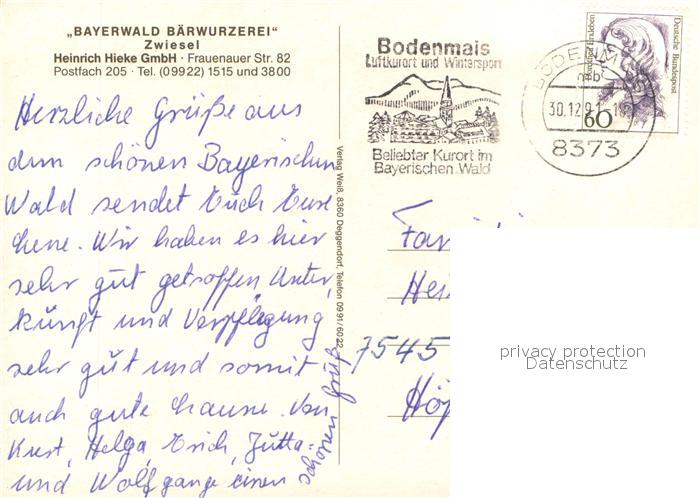 „BAYERWALD BÄRWURZEREI“
Zwiesel
Heinrich Hieke GmbH · Frauenauer Str. 82
Postfach 205 · Tel. (09922) 1515 und 3800
Herzliche Grüße aus
dem schönen Bayerischen
Wald sendet Euch
Wir haben es hier
sehr gut getroffen Unter,
kunft und Verpflegung
sehr gut und somit
auch gute Laune. Von
Kurt, Helga, Erich, Jutta
und Wolfgang einen
schönen Gruß
Verlag Weiß, 8360 Deggendorf, Telefon 0991/6022
Bodenmais
Luftkurort und Wintersport
Beliebter Kurort im
Bayerischen Wald
BODENM
mb
30.12.91
8373
60
Deutsche Bundespost
Fam
Hei
7545
Höf
privacy protection
Datenschutz